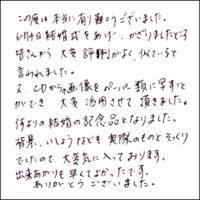 この度は本当に有り難とうございました。
6月4日結婚式をあげ、かざりましたところ
皆さんから大変評判がよく、似ていると
言われました。
又、CDからの画像をペーパー類に写すこと
ができ、大変活用させて頂きました。
何よりの結婚の記念品となりました。
背景、いしょうなども実際のものとそっくり
でしたので、大変気に入っております。
出来あがりも早くてよかったです。
ありがとうございました。